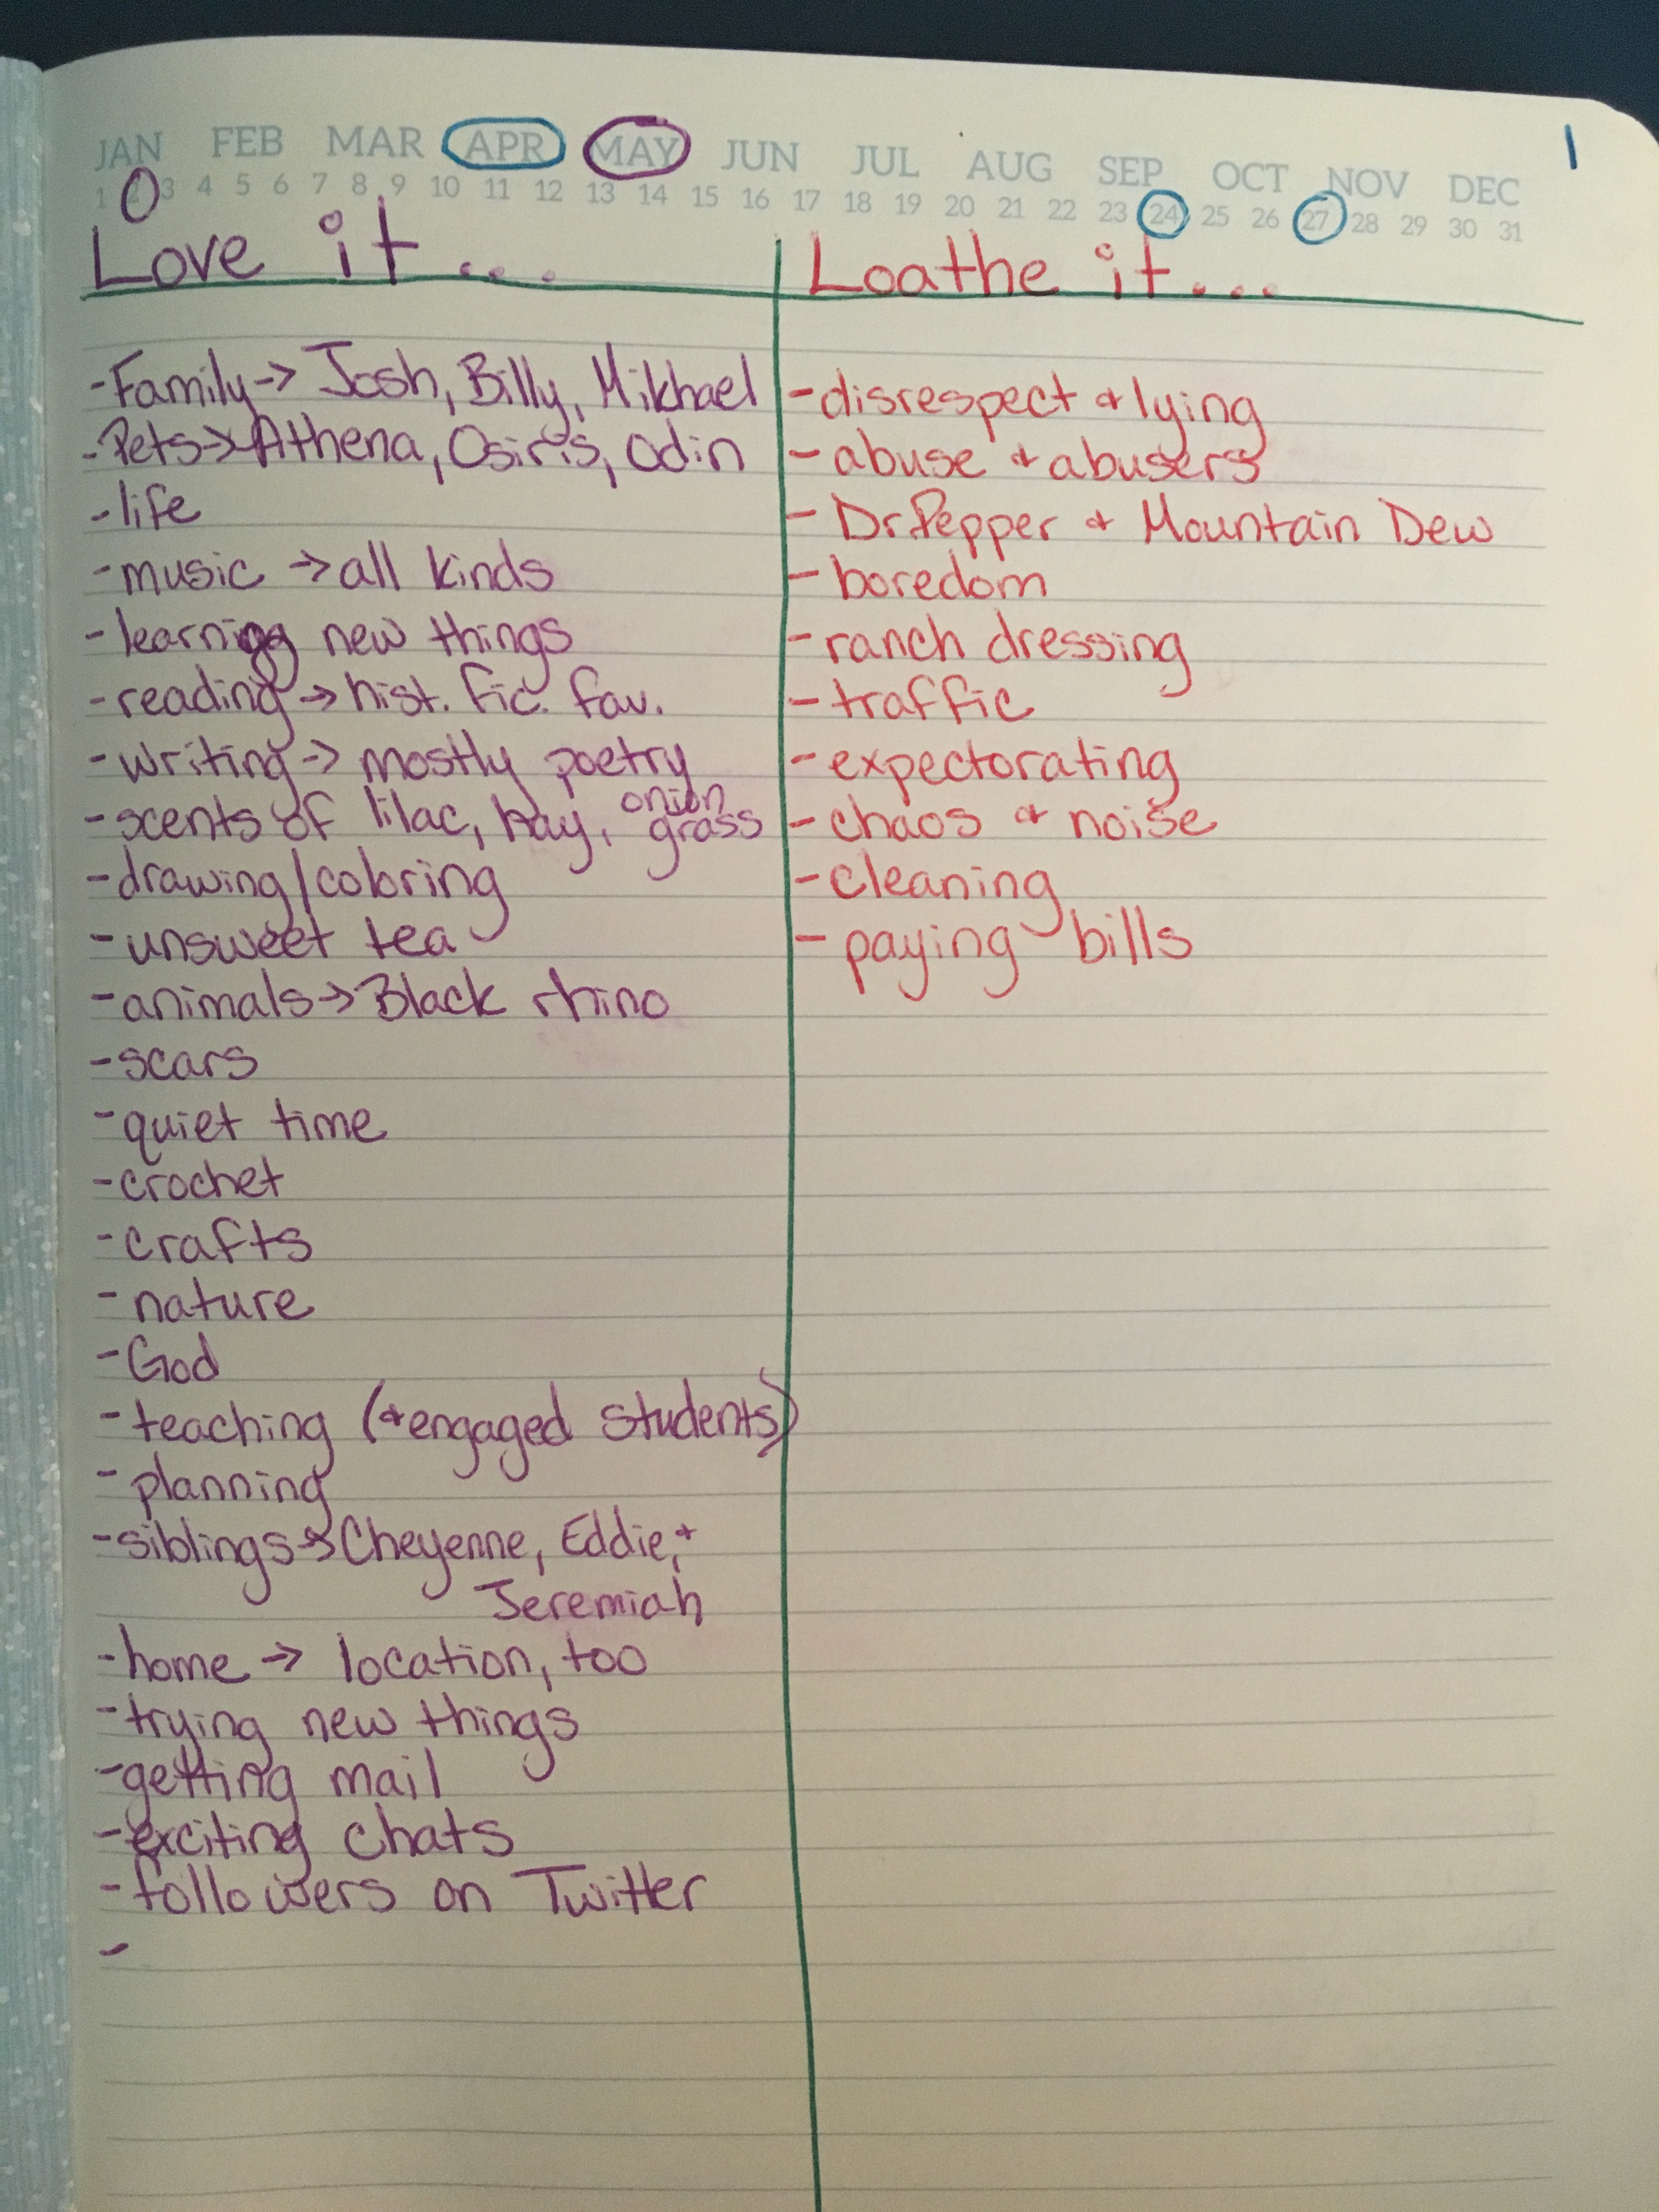 JAN FEB MAR APR MAY JUN JUL AUG SEP OCT NOV DEC
1
1 2 3 4 5 6 7 8 9 10 11 12 13 14 15 16 17 18 19 20 21 22 23 24 25 26 27 28 29 30 31
Love it...
-Family→ Josh, Billy, Mikhael
-Pets→Athena, Osiris, Odin
-life
-music →all kinds
-learning new things
-reading→ hist. fic. fav.
-writing→ mostly poetry
-scents of lilac, hay, onion grass
-drawing/coloring
-unsweet tea
-animals→Black rhino
-scars
-quiet time
-crochet
-crafts
-nature
-God
-teaching (+engaged students)
-planning
-siblings→Cheyenne, Eddie,+
Jeremiah
-home → location, too
-trying new things
-getting mail
-exciting chats
-followers on Twitter
-
Loathe it...
-disrespect + lying
-abuse + abusers
-Dr.Pepper + Mountain Dew
-boredom
-ranch dressing
-traffic
-expectorating
-chaos + noise
-cleaning
-paying bills